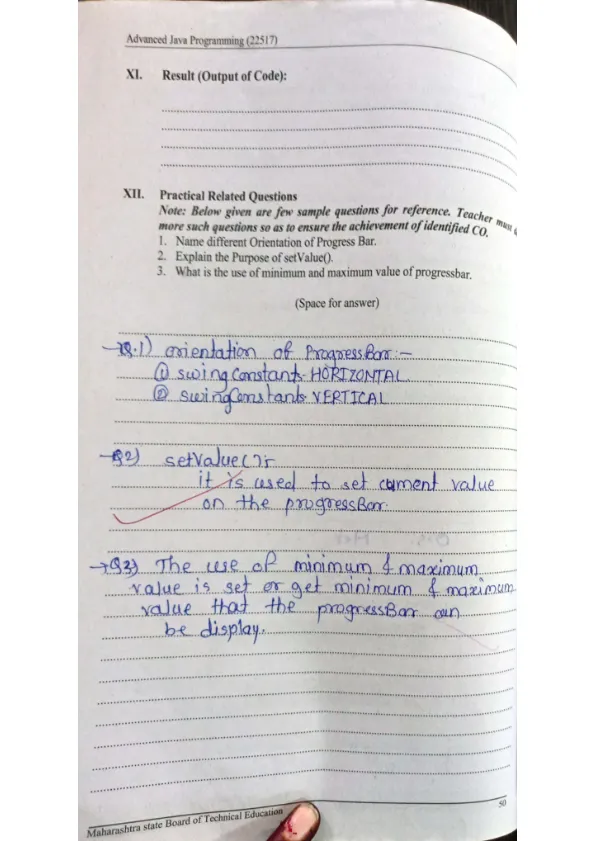 Advanced Java Programming (22517)
XI. Result (Output of Code):
XII. Practical Related Questions
Note: Below given are few sample questions for reference. Teacher must
more such questions so as to ensure the achievement of identified CO.
1. Name different Orientation of Progress Bar.
2. Explain the Purpose of setValue().
3. What is the use of minimum and maximum value of progressbar.
(Space for answer)
→Q.1) orientation of ProgressBar:-
① swing Constants. HORIZONTAL.
② swingConstants. VERTICAL
→Q2) setValue():-
it is used to set current value
on the progressBar.
→Q3) The use of minimum & maximum
value is set or get minimum & maximum
value that the progressBar can
be display.
50
Maharashtra state Board of Technical Education